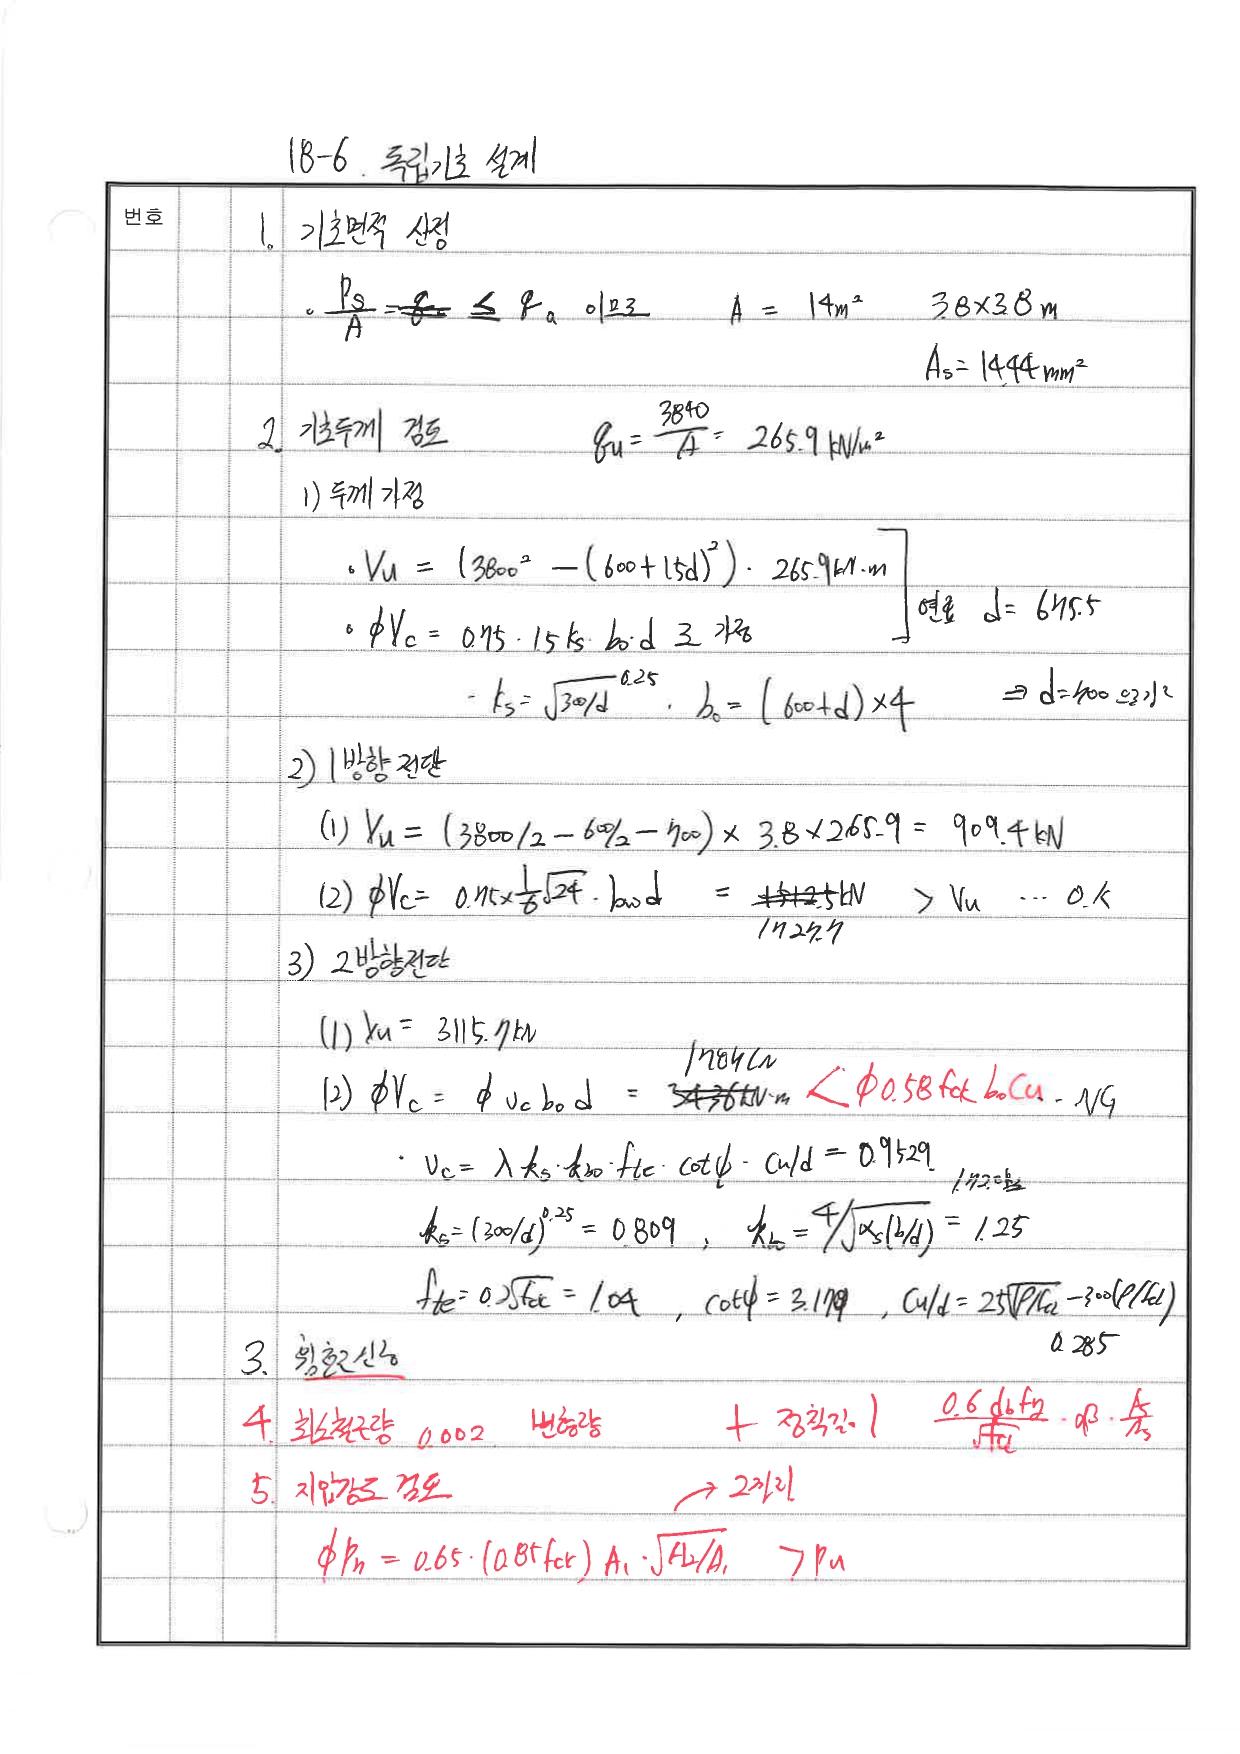 18-6. 독립기초 설계
번호
1. 기초면적 산정
· Ps/A = ≤ qa 이므로 A = 14m² 3.8×3.8 m
As = 14.44 mm²
2. 기초두께 검토 qu = 3840/A = 265.9 kN/m²
1) 두께 가정
· Vu = (3800² - (600+1.5d)²) · 265.9 kN·m
· φVc = 0.75 · 1.5 ks · bo·d 로 가정
연표 d = 675.5
- ks = √300/d^0.25 · bo = (600+d)×4 ⇒ d=700 으로
2) 1방향 전단
(1) Vu = (3800/2 - 600/2 - 700) × 3.8 × 265.9 = 909.4 kN
(2) φVc = 0.75×1/6√24 · bw d = 1312.5 kN > Vu ... O.K
1727.7
3) 2방향전단
(1) Vu = 3115.7 kN
1787 kN
(2) φVc = φ vc bo d = 3436 kN·m < φ0.58 fck bo Cu - NG
· vc = λ ks · kbo · fte · cotψ · Cu/d = 0.9529
ks = (300/d)^0.25 = 0.809 , kbo = 4/√αs(b/d) = 1.25
fte = 0.2√fck = 1.04 , cotψ = 3.179 , Cu/d = 25√ρ/fck - 300(ρ/fck)
0.285
3. 휨
4. 최소철근량 0.002 변형량 + 정착길이 0.6 db fy/√fck · αβ · As/As
5. 지압강도 검토 → 2자리
φPn = 0.65 · (0.85 fck) A₁ · √A₂/A₁ > Pu